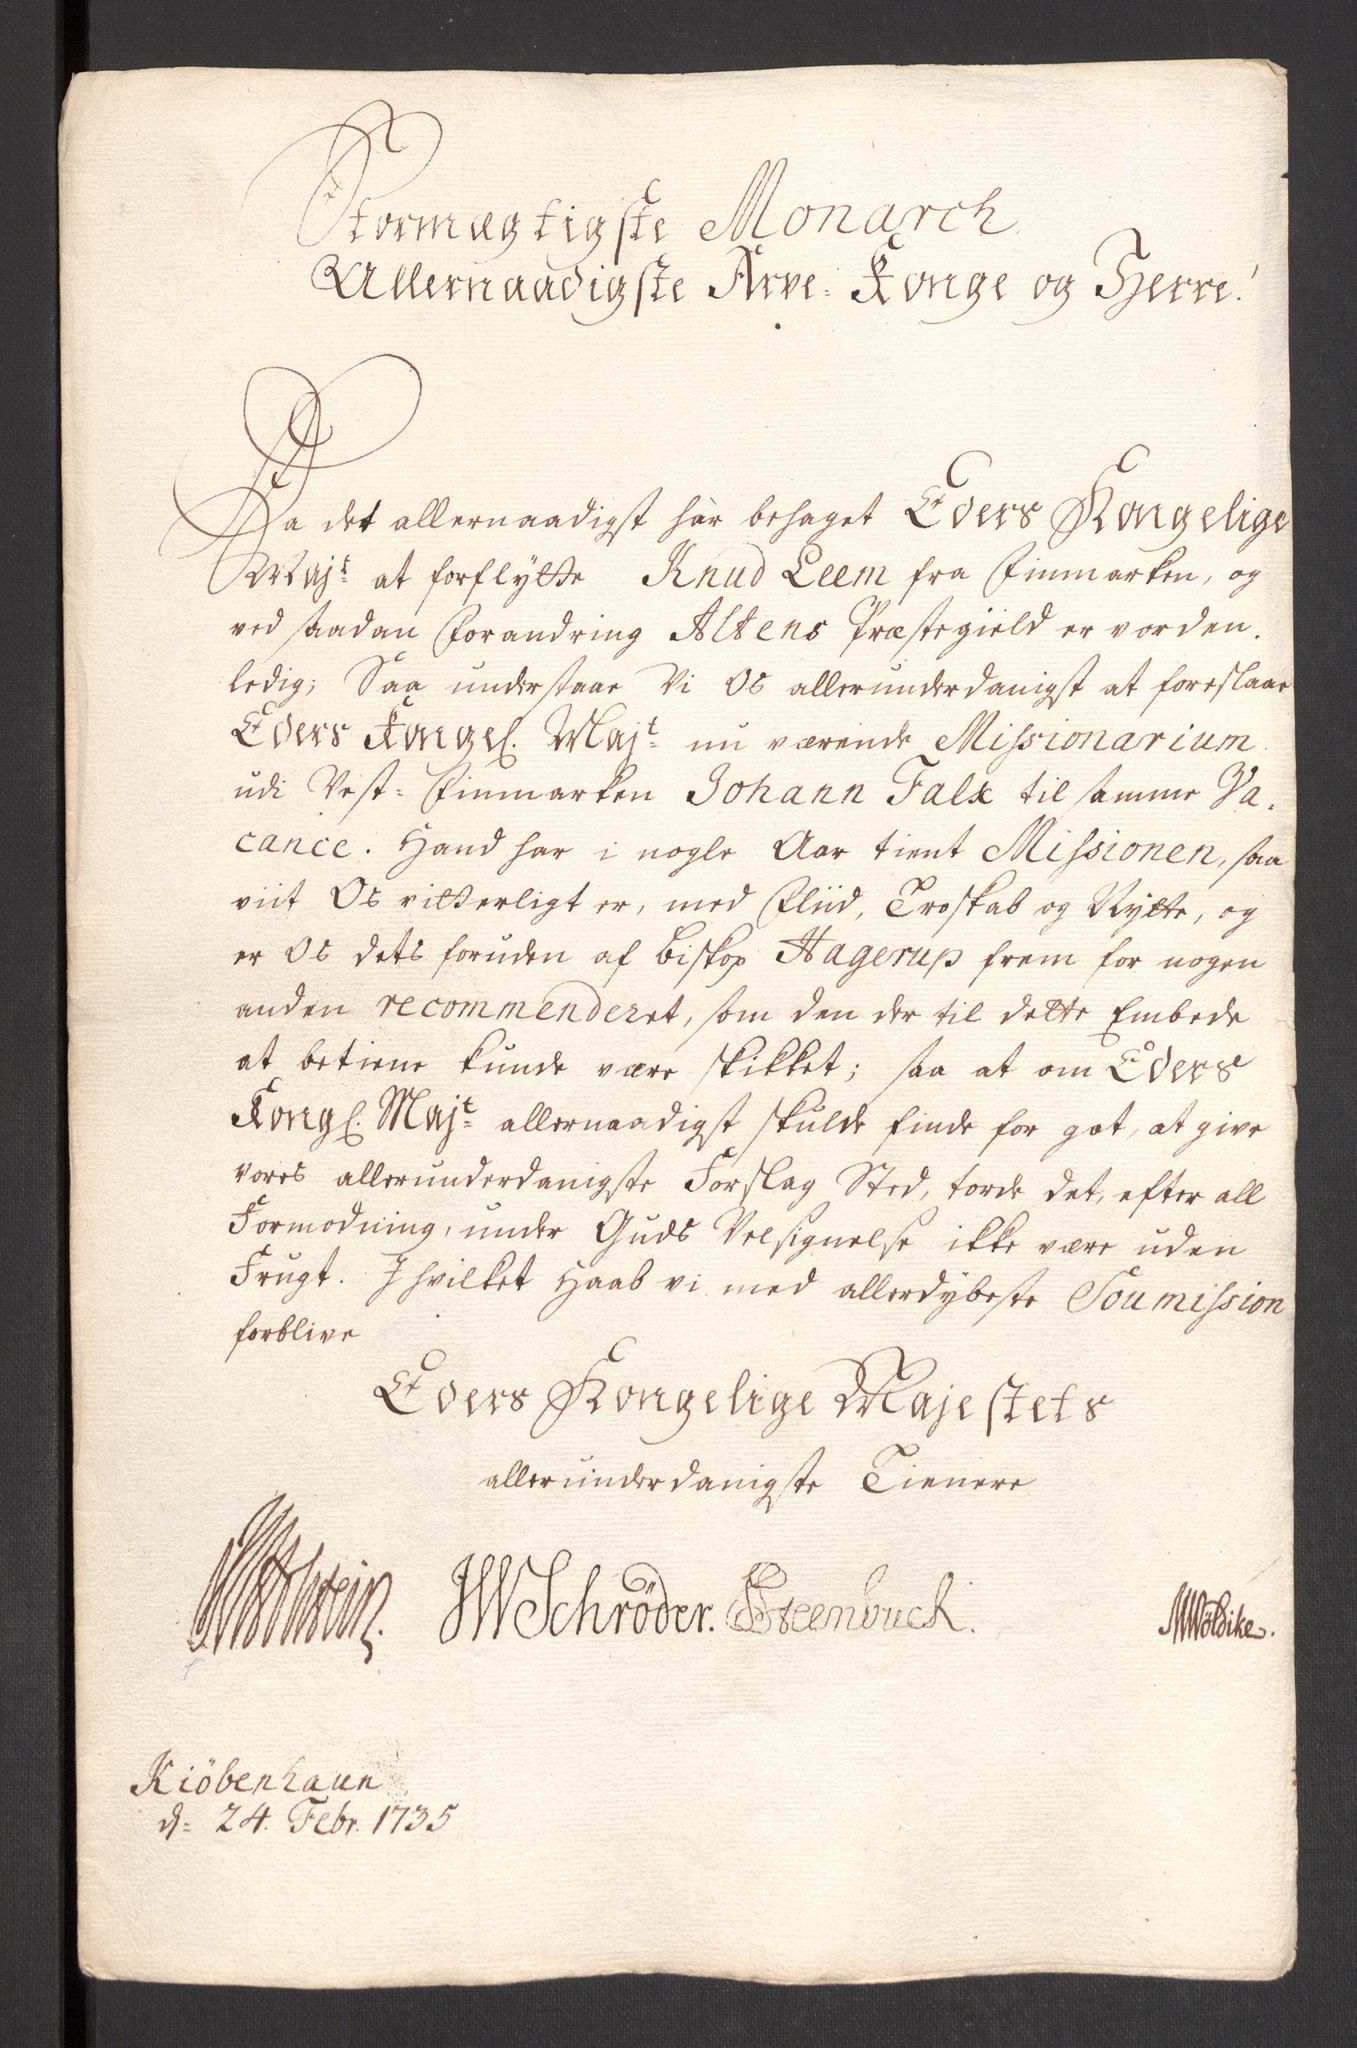 Stormægtigste Monarch
Allernaadigste Arve-Konge og Herre!
Da det allernaadigst har behaget Eders Kongelige
Majt: at forflytte Knud Leem fra Finmarken, og
ved saadan Forandring Altens Præstegield er vorden
ledig; Saa understaae Vi Os allerunderdanigst at foreslaae
Eders Kongel. Majt: nu værende Missionarium
udi Vest-Finmarken Johann Falx til samme Va-
cance. Hand har i nogle Aar tient Missionen, saa
viit Os vitterligt er, med Fliid, Troskab og Nytte, og
er Os dets foruden af Biskop Hagerup frem for nogen
anden recommenderet, som den der til dette Embede
at betiene kunde være skikket; saa at om Eders
Kongl. Majt: allernaadigst skulde finde for got, at give
vores allerunderdanigste Forslag Sted, torde det, efter all
Formodning, under Guds Velsignelse ikke være uden
Frugt. I hvilket Haab vi med allerdybeste Soumission
forblive
Eders Kongelige Majestets
allerunderdanigste Tienere
JWSchröder. Steenbuch. MWöldike.
Kiöbenhaun
d: 24. Febr. 1735